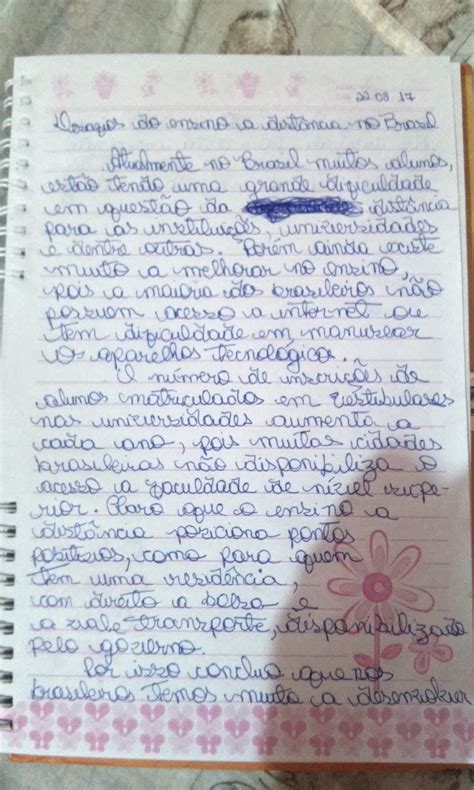 22 08 17
Desafios do ensino a distância no Brasil
Atualmente no Brasil muitos alunos,
estão tendo uma grande dificuldade
em questão da distância
para as instituições, universidades
e dentre outras. Porém ainda existe
muito a melhorar no ensino,
pois a maioria dos brasileiros não
possuem acesso a internet ou
tem dificuldade em manusear
os aparelhos tecnológicos.
O número de inscrições de
alunos matriculados em vestibulares
nas universidades aumenta a
cada ano, pois muitas cidades
brasileiras não disponibiliza o
acesso a faculdade de nível supe-
rior. Claro que o ensino a
distância posiciona pontos
positivos, como para quem
tem uma residência,
com direito a bolsa e
a vale transporte, disponibilizado
pelo governo.
Por isso concluo que nos
brasileiros temos muito a desenvolver